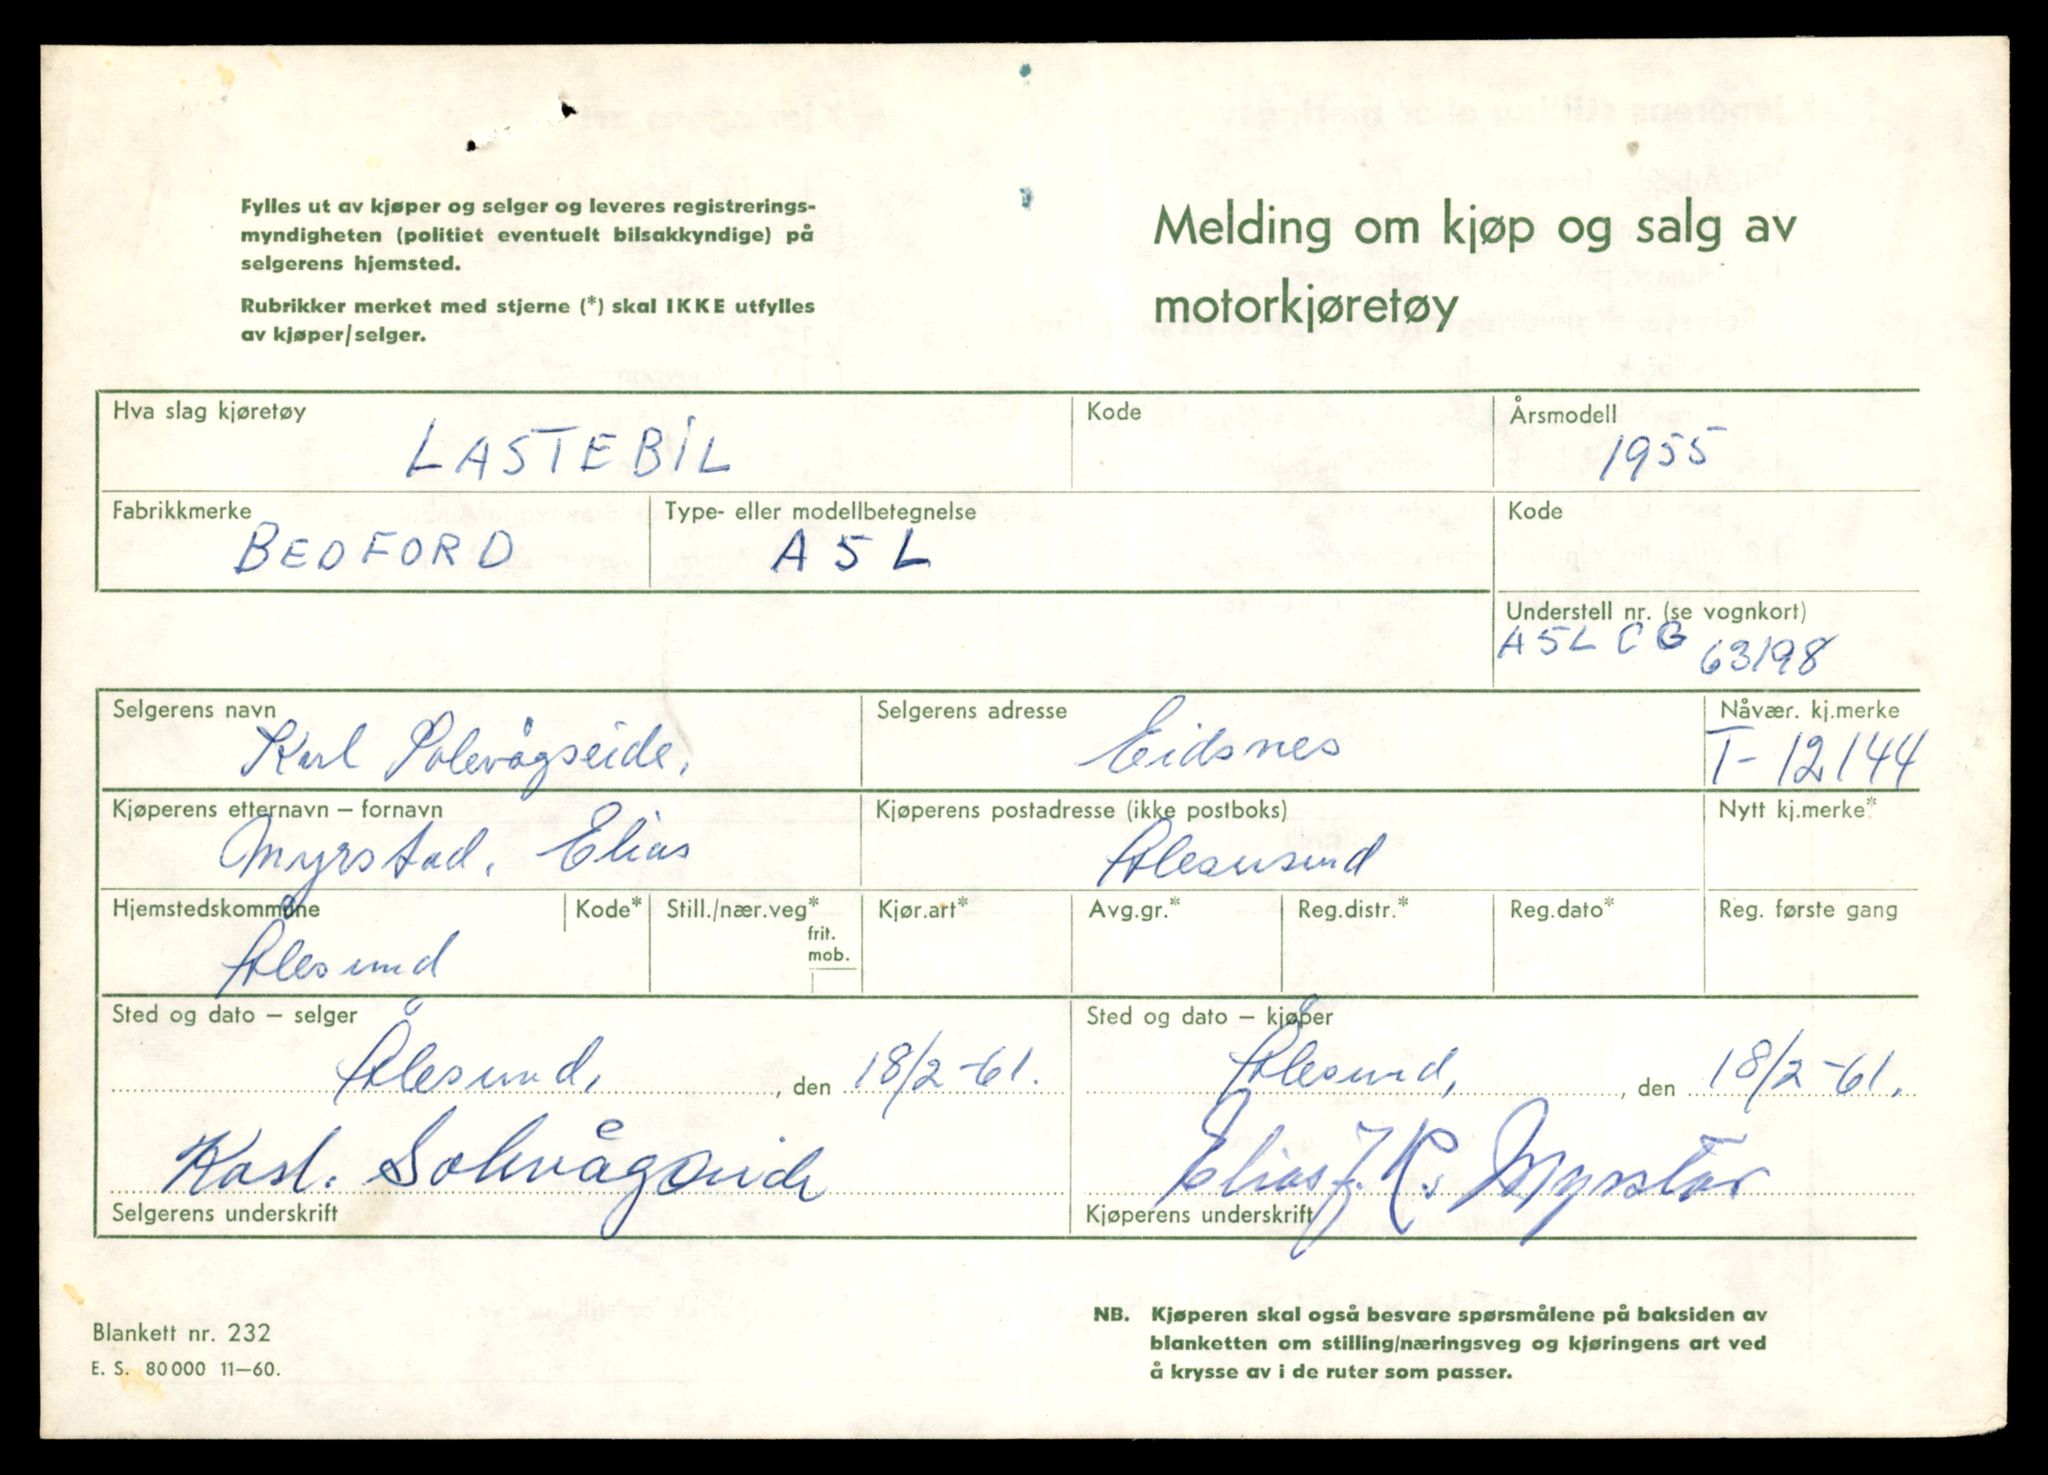 Fylles ut av kjøper og selger og leveres registrerings-
myndigheten (politiet eventuelt bilsakkyndige) på
selgerens hjemsted.
Rubrikker merket med stjerne (*) skal IKKE utfylles
av kjøper/selger.
Melding om kjøp og salg av
motorkjøretøy
Hva slag kjøretøy
LASTEBIL
Kode
Årsmodell
1955
Fabrikkmerke
BEDFORD
Type- eller modellbetegnelse
A5L
Kode
Understell nr. (se vognkort)
A5L CG 63198
Selgerens navn
Karl Solevågseide.
Selgerens adresse
Eidsnes
Nåvær. kj.merke
T-12144
Kjøperens etternavn – fornavn
Myrstad, Elias
Kjøperens postadresse (ikke postboks)
Ålesund
Nytt kj.merke*
Hjemstedskommune
Ålesund
Kode*
Still./nær.veg*
frit.
mob.
Kjør.art*
Avg.gr.*
Reg.distr.*
Reg.dato*
Reg. første gang
Sted og dato – selger
Ålesund, den 18/2-61.
Karl. Solevågseide
Selgerens underskrift
Sted og dato – kjøper
Ålesund, den 18/2-61.
Elias J. K. Myrstad
Kjøperens underskrift
Blankett nr. 232
E. S. 80000 11–60.
NB. Kjøperen skal også besvare spørsmålene på baksiden av
blanketten om stilling/næringsveg og kjøringens art ved
å krysse av i de ruter som passer.